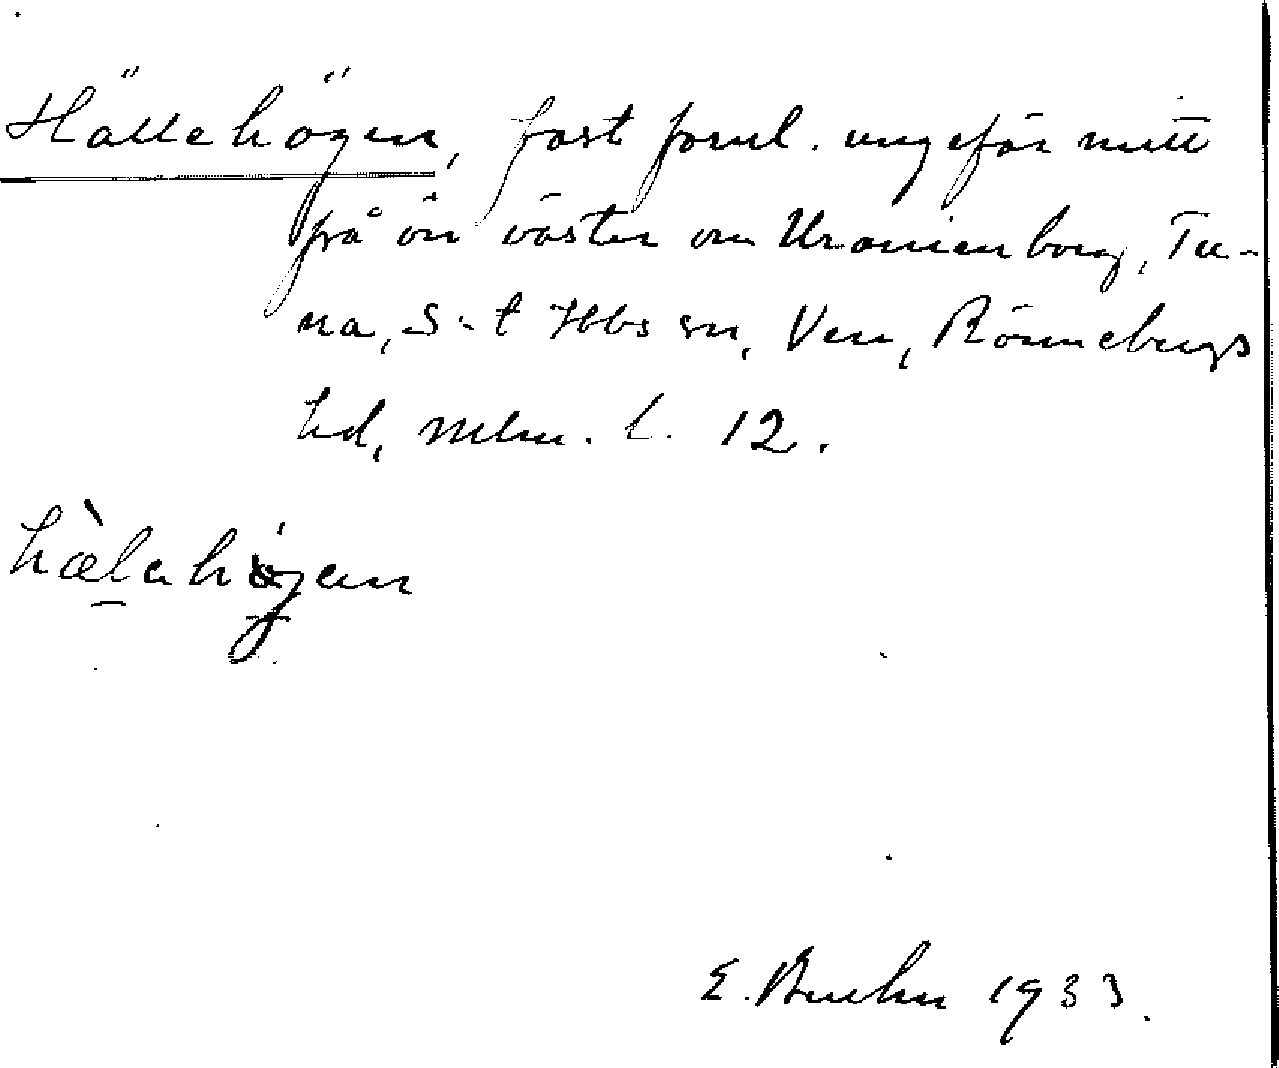 Hällehögen, fast fornl. ungefär mitt
på ön väster om Uranienborg, Tu-
na, S:t Ibbs sn, Ven, Rönnebergs
hd, Mlm. l. 12.
hæ̀lahögan
E. Bruhn 1933.